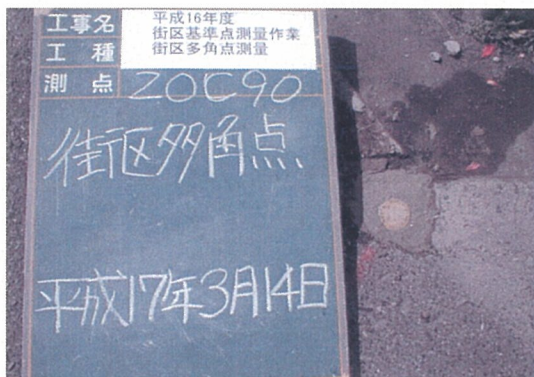 工事名 平成16年度
街区基準点測量作業
工種 街区多角点測量
測点 20C90
街区多角点
平成17年3月14日